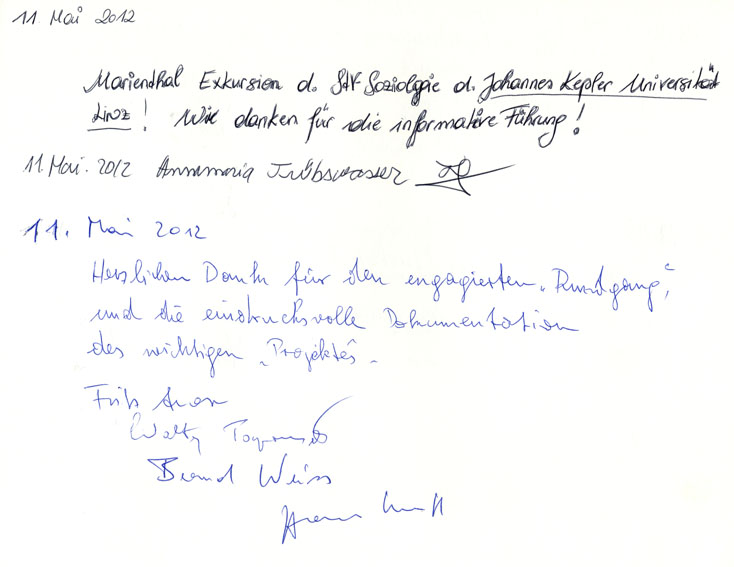 11 Mai 2012
Marienthal Exkursion d. StV Soziologie d. Johannes Kepler Universität
Linz! Wir danken für die informative Führung!
11. Mai. 2012 Annamaria Trübswasser
11. Mai 2012
Herzlichen Dank für den engagierten "Rundgang",
und die eindrucksvolle Dokumentation
des wichtigen "Projektes".
Fritz
Bernd Weiss